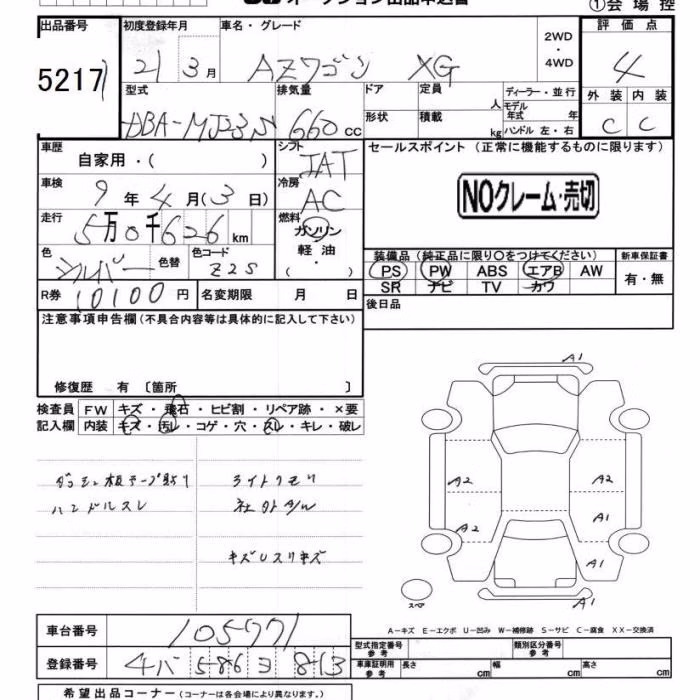 ①会場控
出品番号
初度登録年月
車名・グレード
評価点
5217
21 3月
AZワゴン XG
2WD
・
4WD
4
型式
排気量
ドア
定員
人
ディーラー・並行
モデル年式 年
外装 内装
DBA-MJ23S
660cc
形状
積載
kg
ハンドル 左・右
C C
車歴
自家用・( )
シフト
IAT
セールスポイント (正常に機能するものに限ります)
車検
9年4月(3日)
冷房
AC
NOクレーム・売切
走行
5万0千626km
燃料
ガソリン
軽・油
( )
色
シルバー
色替
色コード
Z2S
装備品 (純正品に限り○をつけてください)
新車保証書
PS PW ABS エアB AW
SR ナビ TV カワ
有・無
R券
10100円
名変期限 月 日
後日品
注意事項申告欄(不具合内容等は具体的に記入して下さい)
修復歴 有 〔箇所 〕
検査員
記入欄
FW キズ・飛石・ヒビ割・リペア跡・×要
内装 キズ・汚レ・コゲ・穴・スレ・キレ・破レ
ダッシュ板テープ貼り
ハンドルスレ
ライトクモリ
社外A/W
キズUスリキズ
A1
A2
A2
A2
A1
A1
A1
スペア
A-キズ E-エクボ U-凹み W-補修跡 S-サビ C-腐食 XX-交換済
車台番号
105771
登録番号
586 ヨ 813
型式指定番号
参考
類別区分番号
参考
車庫証明用
参考
長さ cm
幅 cm
高さ cm
希望出品コーナー (コーナーは各会場により異なります。)